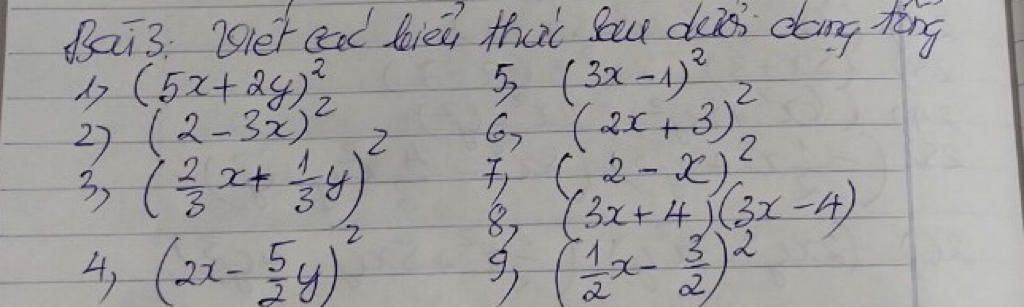 Bài 3: Viết các biểu thức sau dưới dạng tổng
1, (5x+2y)²
2) (2-3x)²
3, (2/3 x + 1/3 y)²
4, (2x - 5/2 y)²
5, (3x-1)²
6, (2x+3)²
7, (2-x)²
8, (3x+4)(3x-4)
9, (1/2 x - 3/2)²